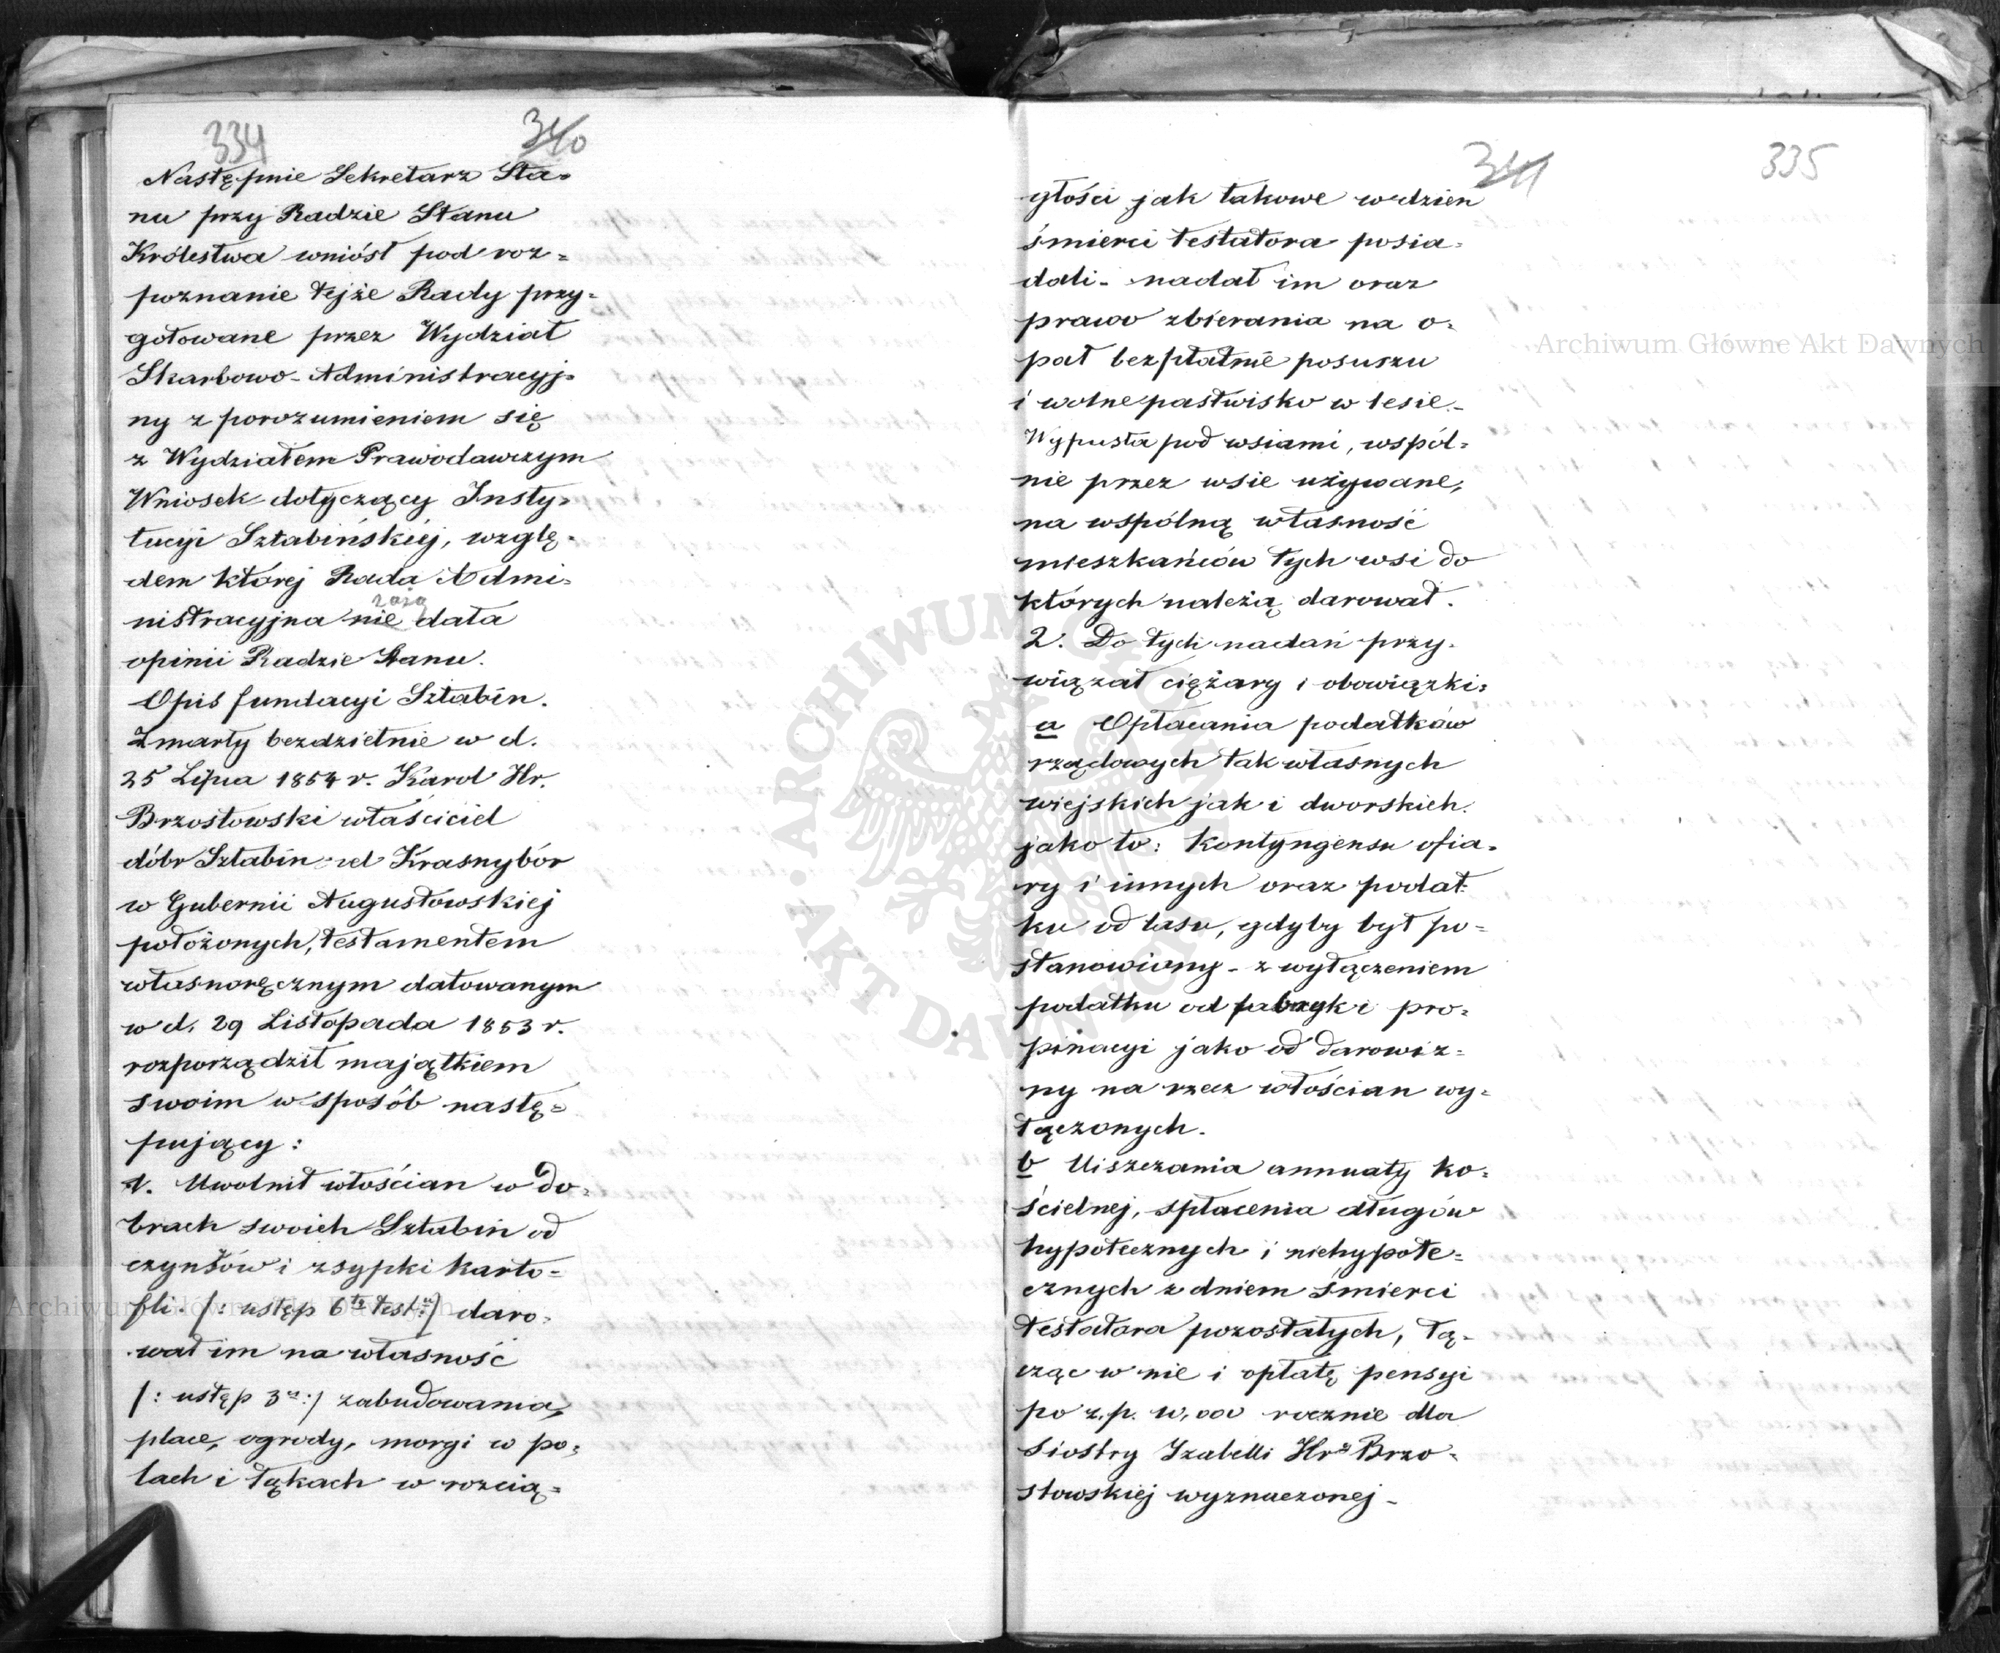 334
340
Następnie Sekretarz Sta=
nu przy Radzie Stanu
Królestwa wniósł pod roz=
poznanie tejże Rady przy=
gotowane przez Wydział
Skarbowo-Administracyj=
ny z porozumieniem się
z Wydziałem Prawodawczym
Wniosek dotyczący Insty=
tucyi Sztabińskiéj, wzglę=
dem której Rada Admi=
nistracyjna nie dała
opinii Radzie Stanu.
Opis fundacyi Sztabin.
Zmarły bezdzietnie w d.
25 Lipca 1854 r. Karol Hr.
Brzostowski właściciel
dóbr Sztabin vel Krasnybór
w Gubernii Augustowskiej
położonych, testamentem
własnoręcznym datowanym
w d. 29 Listopada 1853 r.
rozporządził majątkiem
swoim w sposób nastę=
pujący:
1. Uwolnił włościan w do=
brach swoich Sztabin od
czynszów i zsypki karto=
fli. /: ustęp 6te test:/ daro=
wał im na własność
/: ustęp 3 :/ zabudowania,
place, ogrody, morgi w po=
lach i łąkach w rozcią=
341
335
głości jak takowe w dzień
śmierci testatora posia=
dali - nadał im oraz
prawo zbierania na o=
pał bezpłatnie posuszu
i wolne pastwisko w lesie.-
Wypusta pod wsiami, wspól=
nie przez wsie używane,
na wspólną własność
mieszkańców tych wsi do
których należą darował.
2. Do tych nadań przy=
wiązał ciężary i obowiązki:
a Opłacania podatków
rządowych tak własnych
wiejskich jak i dworskich.
jako to: Kontyngensu ofia=
ry i innych oraz podat=
ku od lasu, gdyby był po=
stanowiony - z wyłączeniem
podatku od fabryk i pro=
pinacyi jako od darowiz=
ny na rzecz włościan wy=
łączonych.
b Uiszczania annuaty ko=
ścielnej, spłacenia długów
hypotecznych i niehypote=
cznych z dniem śmierci
testatora pozostałych, łą=
cząc w nie i opłatę pensyi
po z.p. 10,000 rocznie dla
Siostry Izabelli Hr. Brzo=
stowskiej wyznaczonej -
Archiwum Główne Akt Dawnych
Archiwum Główne Akt Dawnych
ARCHIWUM GŁÓWNE AKT DAWNYCH